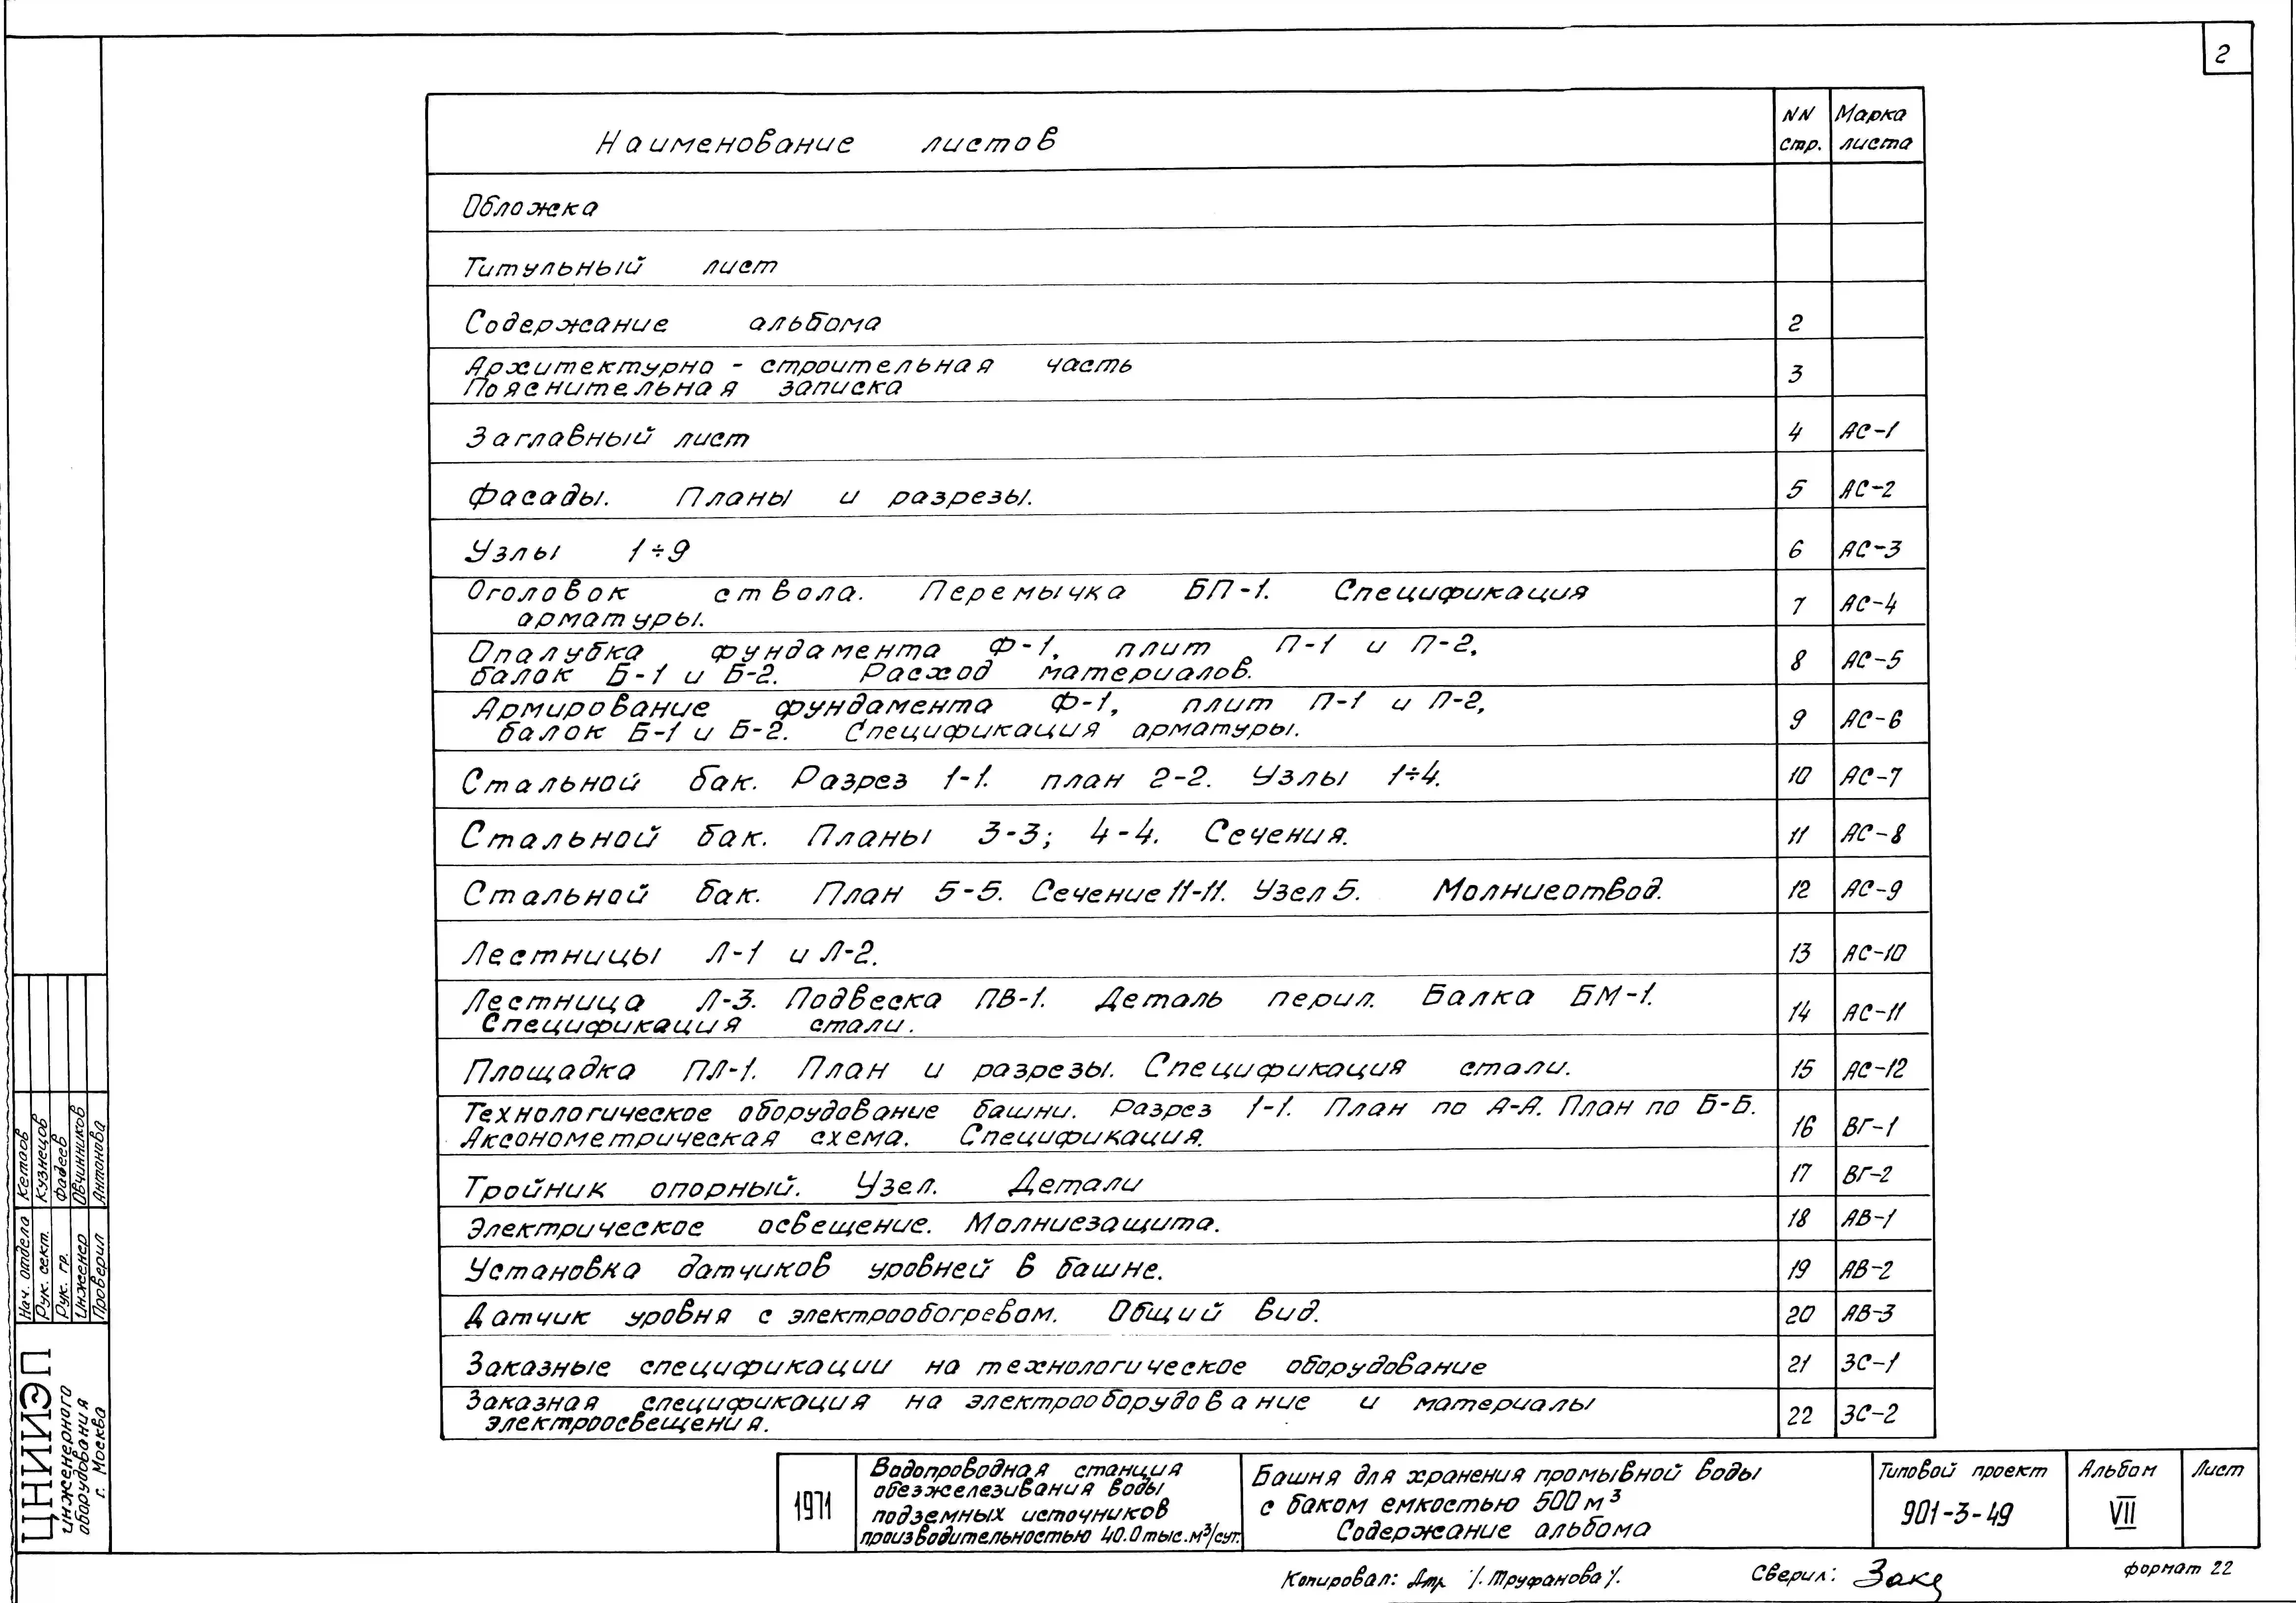 2
Наименование листов
NN стр.
Марка листа
Обложка
Титульный лист
Содержание альбома 2
Архитектурно - строительная часть
Пояснительная записка 3
Заглавный лист 4 АС-1
Фасады. Планы и разрезы. 5 АС-2
Узлы 1÷9 6 АС-3
Оголовок ствола. Перемычка БП-1. Спецификация
арматуры. 7 АС-4
Опалубка фундамента Ф-1, плит П-1 и П-2,
балок Б-1 и Б-2. Расход материалов. 8 АС-5
Армирование фундамента Ф-1, плит П-1 и П-2,
балок Б-1 и Б-2. Спецификация арматуры. 9 АС-6
Стальной бак. Разрез 1-1. план 2-2. Узлы 1÷4. 10 АС-7
Стальной бак. Планы 3-3; 4-4. Сечения. 11 АС-8
Стальной бак. План 5-5. Сечение 11-11. Узел 5. Молниеотвод. 12 АС-9
Лестницы Л-1 и Л-2. 13 АС-10
Лестница Л-3. Подвеска ПВ-1. Деталь перил. Балка БМ-1.
Спецификация стали. 14 АС-11
Площадка ПЛ-1. План и разрезы. Спецификация стали. 15 АС-12
Технологическое оборудование башни. Разрез 1-1. План по А-А. План по Б-Б.
Аксонометрическая схема. Спецификация. 16 ВГ-1
Тройник опорный. Узел. Детали 17 ВГ-2
Электрическое освещение. Молниезащита. 18 АВ-1
Установка датчиков уровней в башне. 19 АВ-2
Датчик уровня с электрообогревом. Общий вид. 20 АВ-3
Заказные спецификации на технологическое оборудование 21 ЗС-1
Заказная спецификация на электрооборудование и материалы
электроосвещения. 22 ЗС-2
Нач. отдела Кетаов
Рук. сект. Кузнецов
Рук. гр. Фадеев
Инженер Овчинников
Проверил Антанова
ЦНИИЭП
инженерного
оборудования
г. Москва
1971
Водопроводная станция
обезжелезивания воды
подземных источников
производительностью 40.0 тыс.м³/сут.
Башня для хранения промывной воды
с баком емкостью 500 м³
Содержание альбома
Типовой проект
901-3-49
Альбом
VII
Лист
Копировал: /Труфанова/.
Сверил:
формат 22